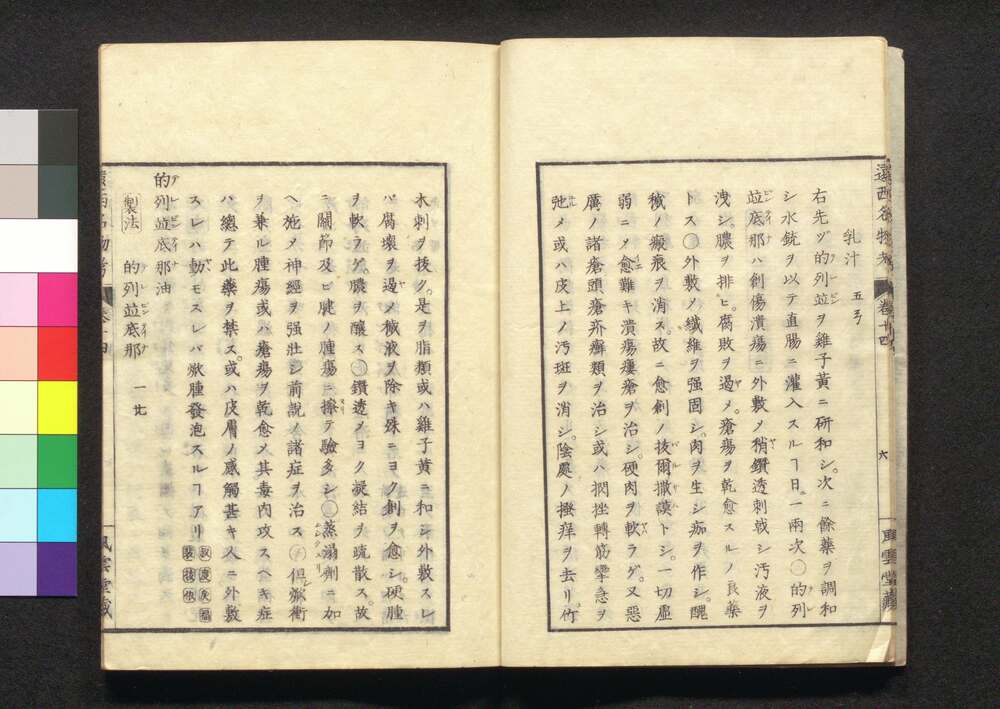 遠西名物考 巻十四 六 風雲堂蔵
乳汁 五弓
右先ヅ的列並ヲ雞子黄ニ研和シ。次ニ餘藥ヲ調和
シ水銃ヲ以テ直腸ニ灌入スルヿ日一兩次〇的列
並底那ハ創傷潰瘍ニ外敷メ稍鑽透刺戟シ汚液ヲ
洩シ。膿ヲ排ヒ。腐敗ヲ遏メ。瘡瘍ヲ乾愈スルノ良藥
トス〇外敷メ纎維ヲ强固シ。肉ヲ生シ痂ヲ作シ。醜
穢ノ瘢痕ヲ消ス。故ニ愈創ノ抜爾撒謨トシ。一切虚
弱ニメ愈難キ潰瘍瘻瘡ヲ治シ。硬肉ヲ軟ラゲ。又惡
厲ノ諸瘡頭瘡疥癬類ヲ治シ或ハ捫挫轉筋攣急ヲ
弛メ或ハ皮上ノ汚斑ヲ消シ。陰處ノ癢ヲ去リ。竹
木刺ヲ抜ク。是ヲ脂類或ハ雞子黄ニ和シ外敷スレ
バ腐壞ヲ遏メ穢液ヲ除キ殊ニヨク創ヲ愈シ。硬腫
ヲ軟ラゲ。膿ヲ釀ス〇鑽透メヨク凝結ヲ疏散ス。故
ニ關節及ビ腱ノ腫瘍ニ擦テ驗多シ〇蒸溻劑ニ加
ヘ弛メ神經ヲ强壯シ前說ノ諸症ヲ治ス〇但焮衝
ヲ兼ル腫瘍或ハ瘡瘍ヲ乾愈メ其毒内攻スヘキ症
ハ總テ此藥ヲ禁ス。或ハ皮膚ノ感觸甚キ人ニ外敷
スレハ動モスレバ焮腫發泡スルヿアリ
的列並底那油
製法 的列並底那 一
遠西名物考 巻十四 風雲堂蔵